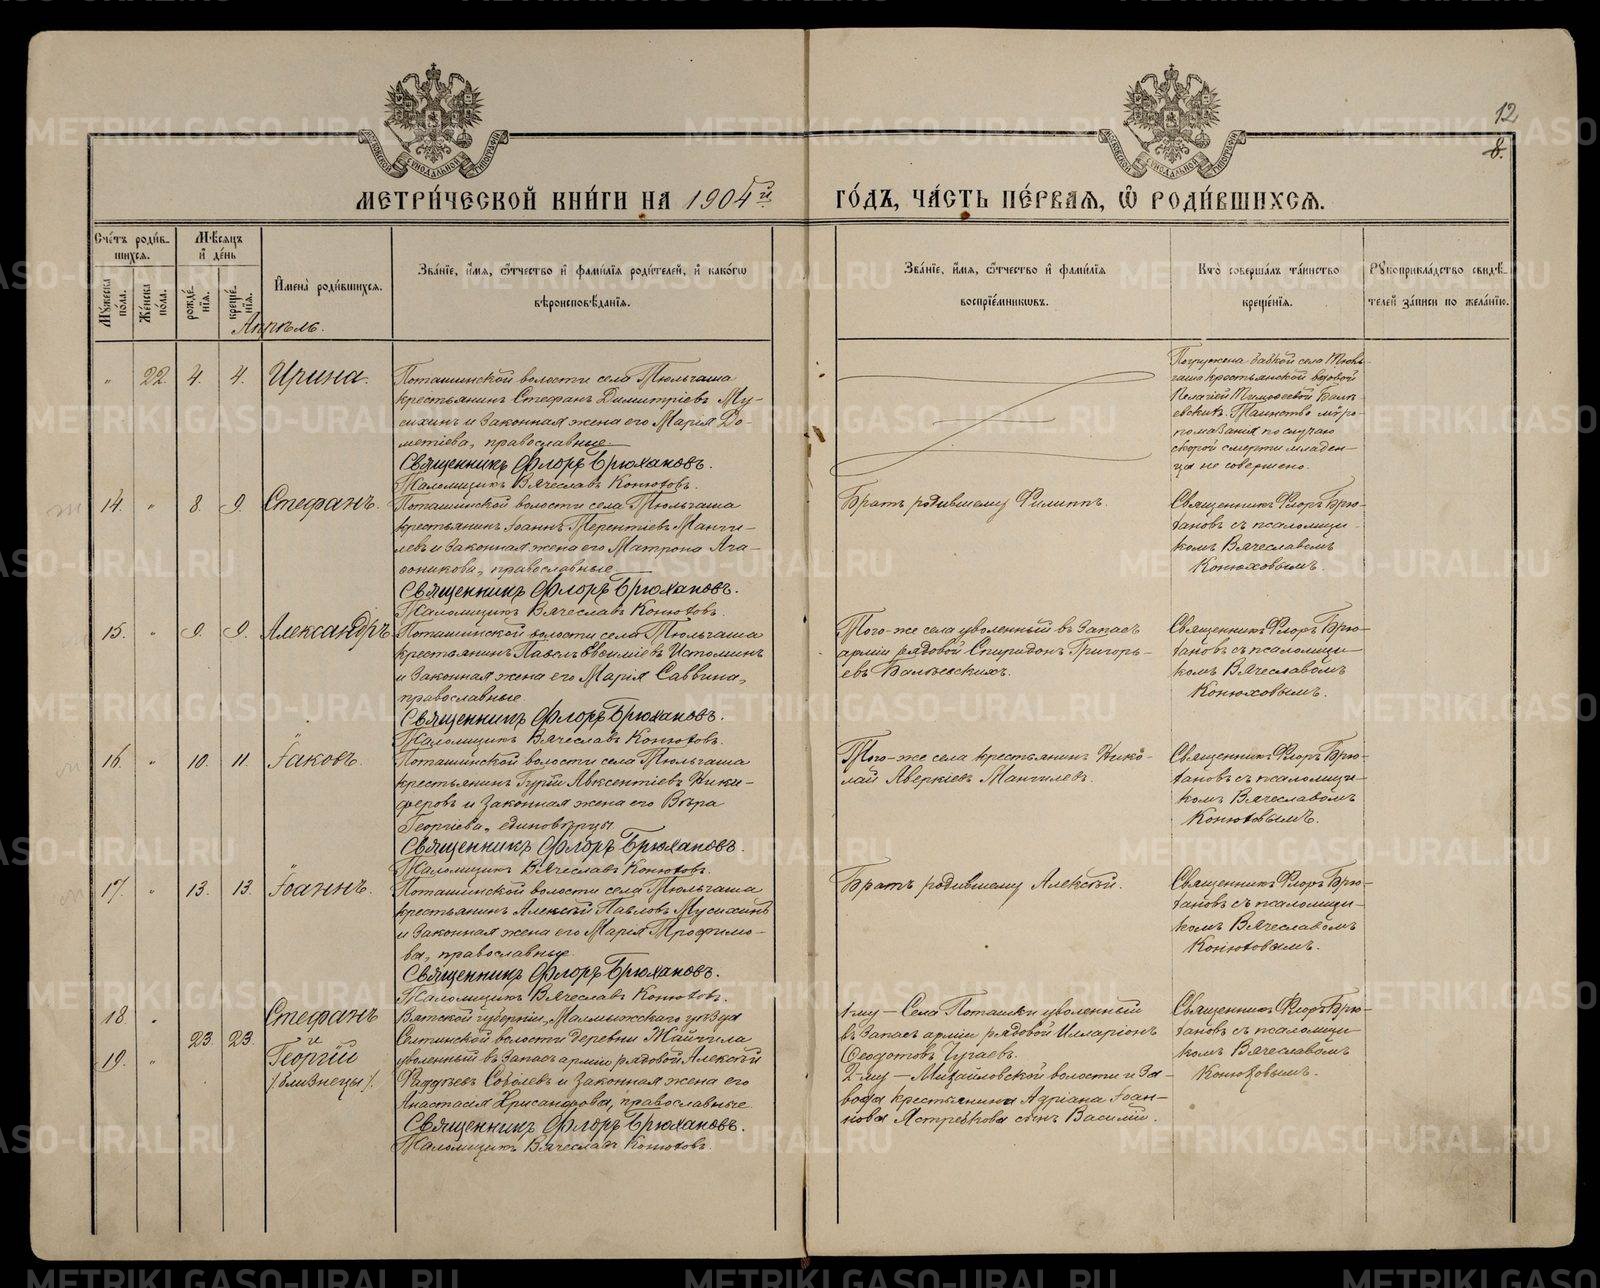 METRIKI.GASO-URAL.RU
12
8.
МОСКОВСКОЙ СѴНОДАЛЬНОЙ ТИПОГРАФІИ
МЕТРИ́ЧЕСКОЙ КНИ́ГИ НА 1904й
ГО́ДЪ, ЧА́СТЬ ПЕ́РВАѦ, Ѡ РОДИ́ВШИХСѦ.
Сче́тъ роди́в-
шихся.
Мѣ́сяцъ
и де́нь
Му́жеска по́ла.
Же́нска по́ла.
рожде́нія.
креще́нія.
Имена̀ роди́вшихся.
Зва́ніе, и́мя, о́тчество и фами́лія роди́телей, и како́гѡ
вѣроисповѣ́данія.
Зва́ніе, и́мя, о́тчество и фами́лія
воспріе́мниковъ.
Кто̀ соверша́лъ та́инство
креще́нія.
Рукоприкла́дство свидѣ́-
телей за́писи по жела́нію.
Апрѣль.
" 22. 4. 4. Ирина.
Поташинской волости села Тюльгаша
крестьянинъ Стефанъ Димитріевъ Му-
сихинъ и законная жена его Марія До-
метіева, православные.
Священникъ Флоръ Брюхановъ.
Псаломщикъ Вячеславъ Конюховъ.
Погружена бабкой села Тюль-
гаша крестьянской вдовой
Пелагіей Тимофеевой
Таинство мѵро-
помазанія по случаю
скорой смерти младен-
ца не совершено.
14. " 8. 9. Стефанъ.
Поташинской волости села Тюльгаша
крестьянинъ Іоаннъ Терентіевъ Манги-
левъ и законная жена его Матрона Ага-
ѳоникова, православные.
Священникъ Флоръ Брюхановъ.
Псаломщикъ Вячеславъ Конюховъ.
Братъ родившему Филиппъ.
Священникъ Флоръ Брю-
хановъ съ псаломщи-
комъ Вячеславомъ
Конюховымъ.
15. " 9. 9. Александръ.
Поташинской волости села Тюльгаша
крестьянинъ Павелъ Евѳиміевъ Истоминъ
и законная жена его Марія Саввина,
православные
Священникъ Флоръ Брюхановъ.
Псаломщикъ Вячеславъ Конюховъ.
Того-же села уволенный въ запасъ
арміи рядовой Спиридонъ Григорь-
евъ
Священникъ Флоръ Брю-
хановъ съ псаломщи-
комъ Вячеславомъ
Конюховымъ.
16. " 10. 11. Іаковъ.
Поташинской волости села Тюльгаша
крестьянинъ Гурій Авксентіевъ Ники-
форовъ и законная жена его Вѣра
Георгіева, единовѣрцы.
Священникъ Флоръ Брюхановъ.
Псаломщикъ Вячеславъ Конюховъ.
Того-же села крестьянинъ Нико-
лай Аверкіевъ Мангилевъ.
Священникъ Флоръ Брю-
хановъ съ псаломщи-
комъ Вячеславомъ
Конюховымъ.
17. " 13. 13. Іоаннъ.
Поташинской волости села Тюльгаша
крестьянинъ Алексѣй Павловъ Мусихинъ
и законная жена его Марія Трофимо-
ва, православные.
Священникъ Флоръ Брюхановъ.
Псаломщикъ Вячеславъ Конюховъ.
Братъ родившему Алексѣй.
Священникъ Флоръ Брю-
хановъ съ псаломщи-
комъ Вячеславомъ
Конюховымъ.
18. " Стефанъ
и
23. 23.
19. " Георгій
/близнецы/.
Вятской губерніи, Малмыжскаго уѣзда
Селтинской волости деревни
уволенный въ запасъ арміи рядовой Алексѣй
Фаддѣевъ Соболевъ и законная жена его
Анастасія Хрисанфова, православные
Священникъ Флоръ Брюхановъ.
Псаломщикъ Вячеславъ Конюховъ.
1-му — Села Поташки уволенный
въ запасъ арміи рядовой Илларіонъ
Ѳеодотовъ Чугаевъ.
2-му — Михайловской волости и за-
вода крестьянина Адріана Іоан-
нова Ястребкова сынъ Василій.
Священникъ Флоръ Брю-
хановъ съ псаломщи-
комъ Вячеславомъ
Конюховымъ.